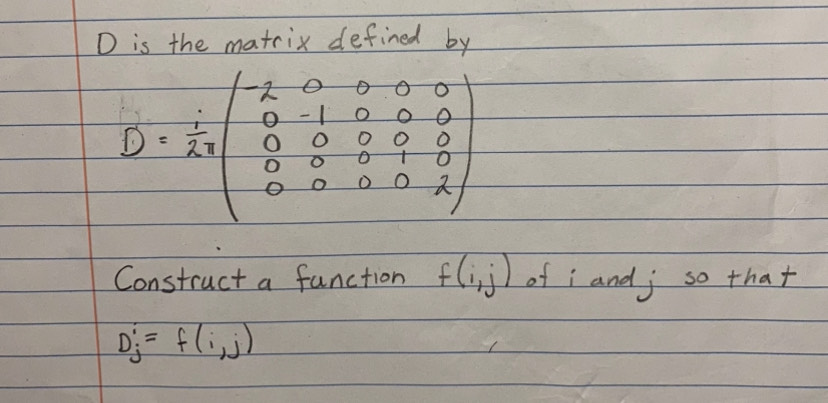 D is the matrix defined by
D = i/2π (-2 0 0 0 0
0 -1 0 0 0
0 0 0 0 0
0 0 0 1 0
0 0 0 0 2)
Construct a function f(i,j) of i and j so that
Dⁱⱼ = f(i,j)